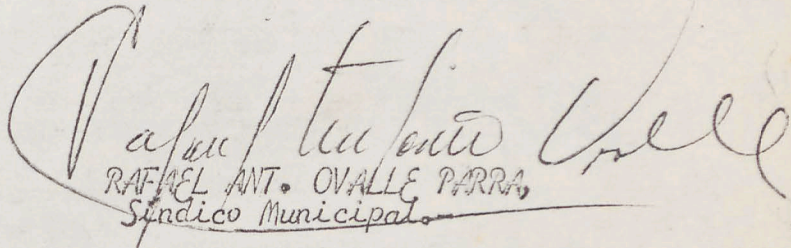 Rafael Antonio Ovalle
RAFAEL ANT. OVALLE PARRA,
Síndico Municipal.-